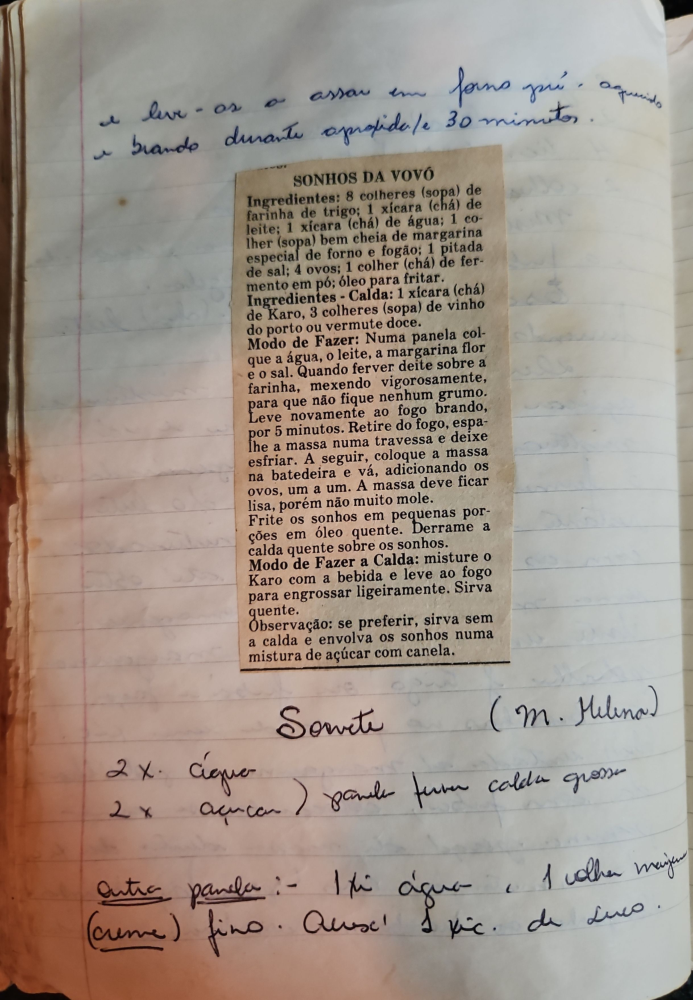 e leve-os a assar em forno pré-aquecido
e brando durante aproxida/e 30 minutos.
SONHOS DA VOVÓ
Ingredientes: 8 colheres (sopa) de
farinha de trigo; 1 xícara (chá) de
leite; 1 xícara (chá) de água; 1 co-
lher (sopa) bem cheia de margarina
especial de forno e fogão; 1 pitada
de sal; 4 ovos; 1 colher (chá) de fer-
mento em pó; óleo para fritar.
Ingredientes - Calda: 1 xícara (chá)
de Karo, 3 colheres (sopa) de vinho
do porto ou vermute doce.
Modo de Fazer: Numa panela col-
que a água, o leite, a margarina flor
e o sal. Quando ferver deite sobre a
farinha, mexendo vigorosamente,
para que não fique nenhum grumo.
Leve novamente ao fogo brando,
por 5 minutos. Retire do fogo, espa-
lhe a massa numa travessa e deixe
esfriar. A seguir, coloque a massa
na batedeira e vá, adicionando os
ovos, um a um. A massa deve ficar
lisa, porém não muito mole.
Frite os sonhos em pequenas por-
ções em óleo quente. Derrame a
calda quente sobre os sonhos.
Modo de Fazer a Calda: misture o
Karo com a bebida e leve ao fogo
para engrossar ligeiramente. Sirva
quente.
Observação: se preferir, sirva sem
a calda e envolva os sonhos numa
mistura de açúcar com canela.
Sorvete (M. Helena)
2 x. água
2 x açucar) panela ferver calda grossa
outra panela:- 1 xi água, 1 colher
(creme) fino. Acresc' 1 xic. de suco.